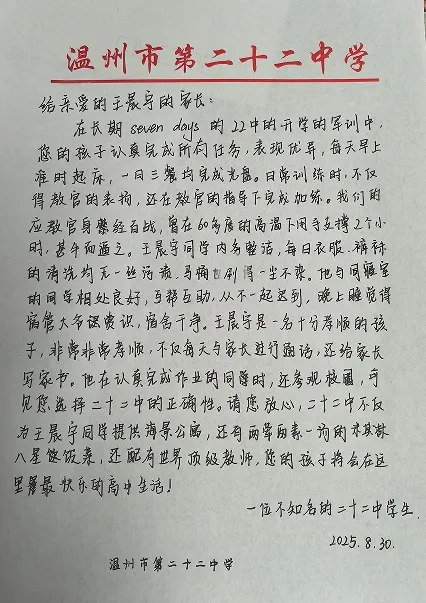 温州市第二十二中学
给亲爱的王晨宇的家长:
在长期seven days的22中的开学的军训中,
您的孩子认真完成所有任务,表现优异,每天早上
准时起床,一日三餐均完成光盘。日常训练时,不仅
得教官的表扬,还在教官的指导下完成加练。我们的
应教官身经百战,曾在60多度的高温下用手支撑2个小
时,甚于而逾之。王晨宇同学内务整洁,每日衣服、裤袜
的清洗均无一丝污渍,马桶也刷得一尘不染。他与同寝室
的同学相处良好,互帮互助,从不一起迟到,晚上睡觉得
宿管大爷课赏识,宿舍干净。王晨宇是一名十分孝顺的孩
子,非常非常孝顺,不仅每天与家长进行通话,还给家长
写家书。他在认真完成作业的同时,还参观校园,可
见您选择二十二中的正确性。请您放心,二十二中不仅
为王晨宇同学提供海景公寓,还有两荤两素一汤的米其林
八星级饭菜,还配有世界顶级教师,您的孩子将会在这
里度最快乐的高中生活!
一位不知名的二十二中学生.
2025.8.30.
温州市第二十二中学